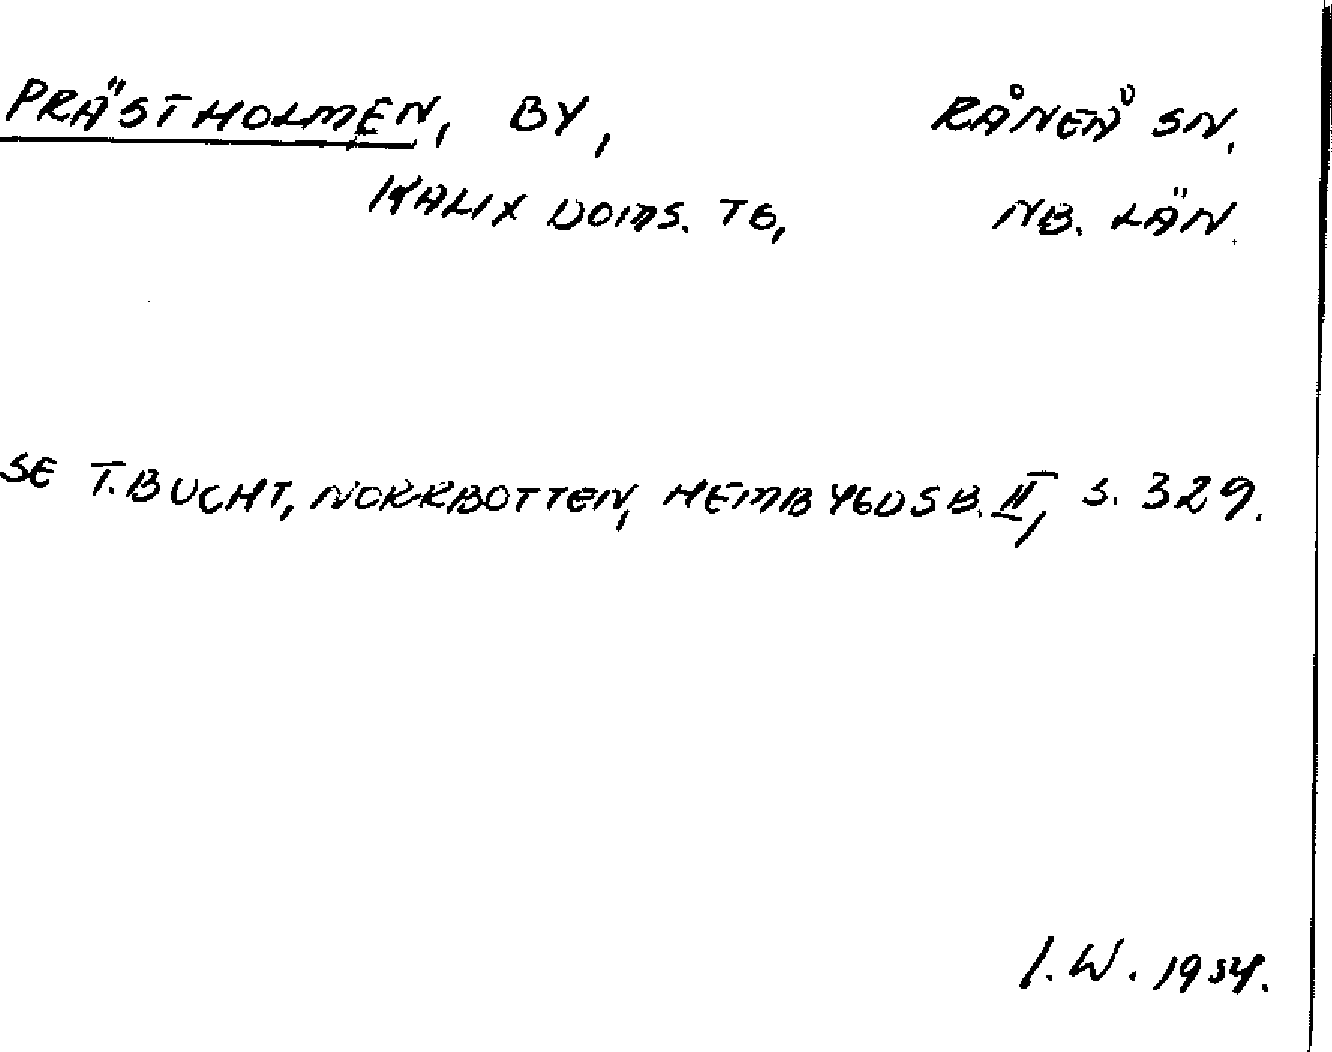 PRÄSTHOLMEN, BY, RÅNEÅ SN.
KALIX DOMS. TG, NB. LÄN.
SE T. BUCHT, NORRBOTTEN, HEMBYGDSB. II, S. 329.
I. W. 1954.